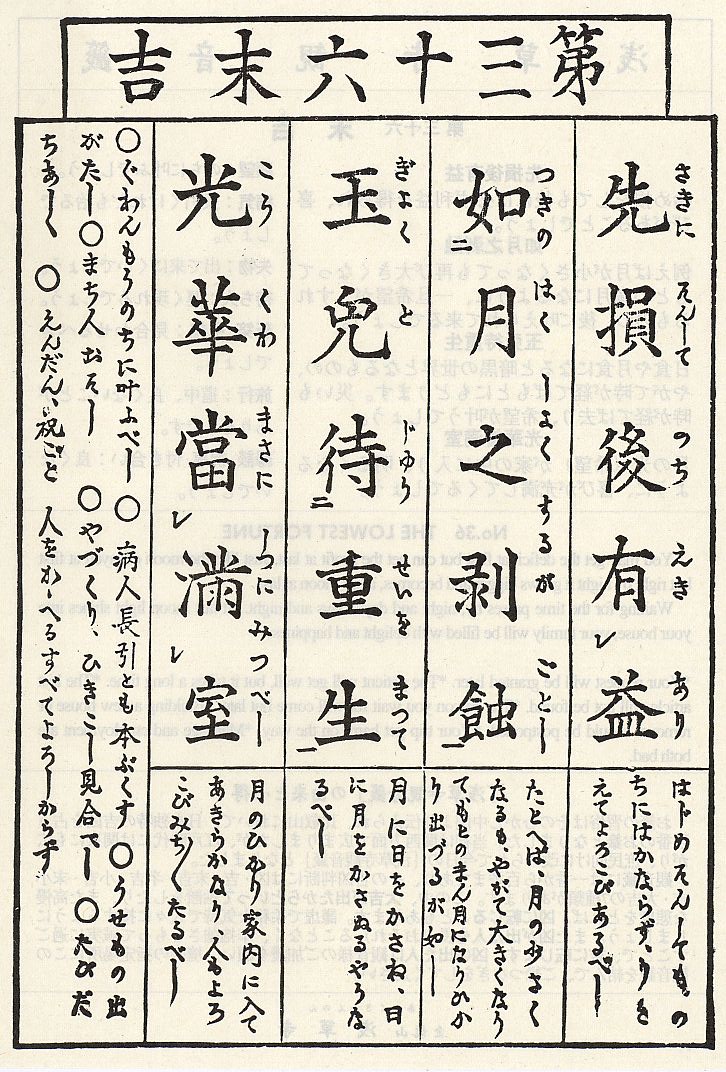 第三十六末吉
さきに そんして のちに えき あり
先損後有レ益
はじめそんしても、の
ちにはかならず、りを
えてよろこびあるべし
つきの はくしよくするが ごとし
如二月之剥蝕一
たとへば月の少さく
なるも、やがて大きくなり
てもとのまん月になりひか
り出づるが如し
ぎよくと じゆうせいを まつて
玉兎待二重生一
月に日をかさね、日
に月をかさぬるやうな
るべし
こうくわ まさに しつにみつべし
光華當レ満レ室
月のひかり家内に入て
あきらかなり人もよろ
こびみち〱たるべし
〇ぐわんもうのちに叶ふべし〇病人長引とも本ぶくす〇うせもの出
がたし〇まち人おそし〇やづくり、ひきこし見合べし〇たびだ
ちあしく〇えんだん、祝ごと人をかゝへるすべてよろしからず